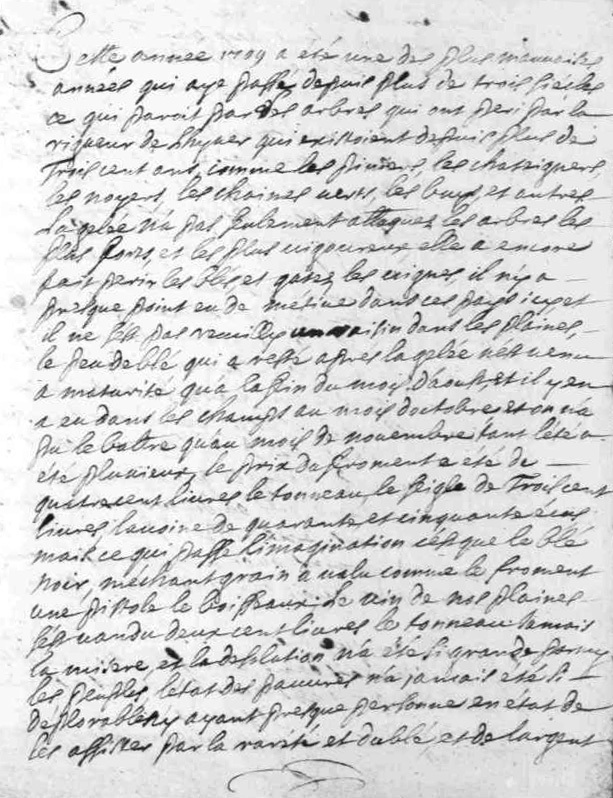 Cette année 1709 a eté une des plus mauvaises
années qui aye passé depuis plus de trois siècles
ce qui paroit par des arbres qui ont peri par la
rigueur de lhyver qui existoient depuis plus de
Trois cent ans, comme les pins, les chateigners,
les noyers, les chaines verts, les buys et autres
La gelée n'a pas seulement attaquez les arbres les
plus forts, et les plus vigoureux, elle a encore
fait perir les blés, et gatez les vignes, il n'y a
presque point eu de métive dans ces pays icy et
il ne s'est pas recuilly un raisin dans les plaines,
le peu de blé qui a resté apres la gelée n'est venu
a maturité qu'a la fin du mois d'aoust, et il y en
a eu dans les champs au mois d'octobre et on n'a
pu le battre qu'au mois de novembre tant l'été a
été pluvieux, le prix du froment a eté de
quatre cent livres le tonneau, le seigle de Trois cent
livres, lavoine de quarante et cinquante ecus
mais ce qui passe l'imagination cest que le blé
noir, méchant grain a valu comme le froment
une pistole le boisseaux, le vin de nos plaines
s'est vandu deux cent livres le tonneau Jamais
la misere, et la desolation n'a été si grande parmy
les peuples, letat des pauvres n'a jamais eté si
deplorable n'y ayant presque personne en état de
les assister par la rareté et du blé, et de largent